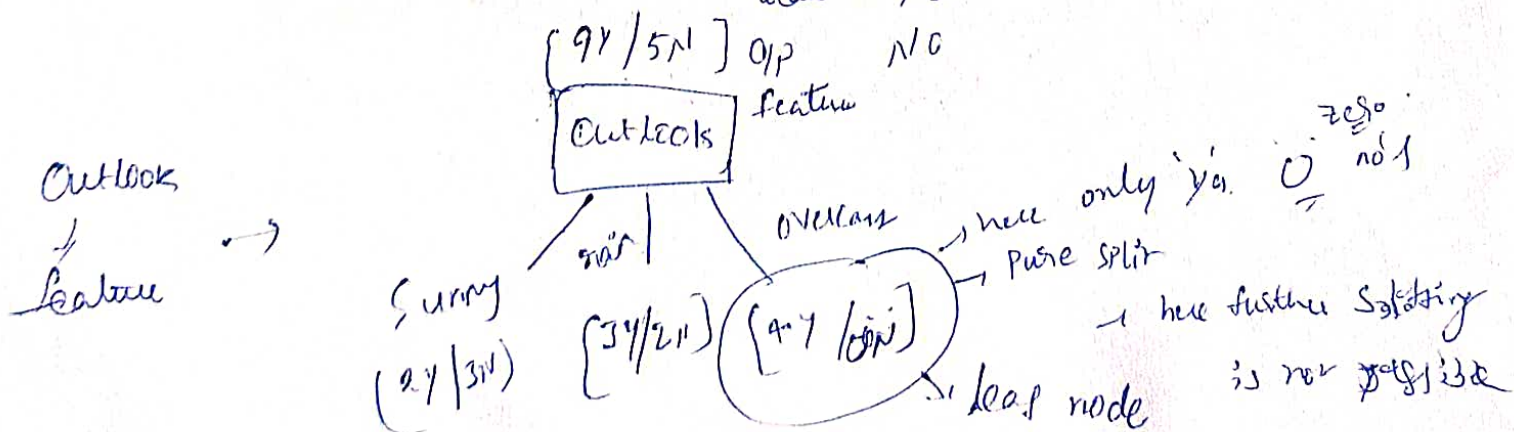 [9Y/5N] O/P NO
Outlook feature
Outlook
feature
Sunny
rain
overcast
[2Y/3N]
[3Y/2N]
[4Y/0N]
→ here only Yes. 0 zero no's
→ Pure split
→ here further splitting
is not possible
→ Leaf node